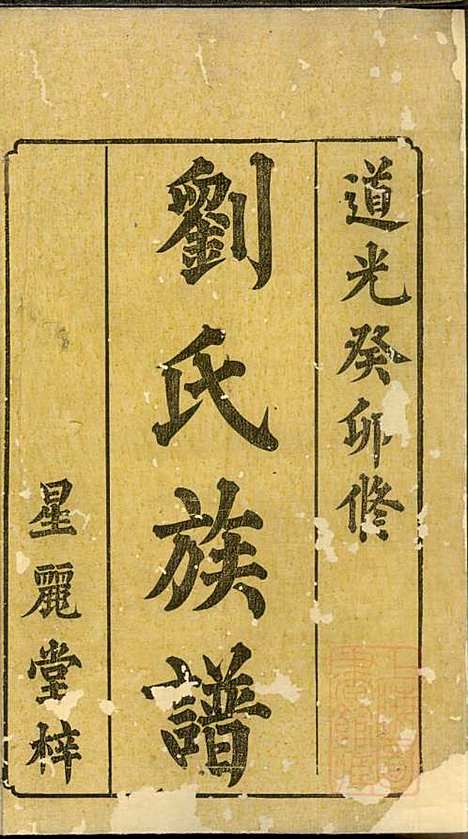 道光癸卯修
劉氏族譜
星麗堂梓